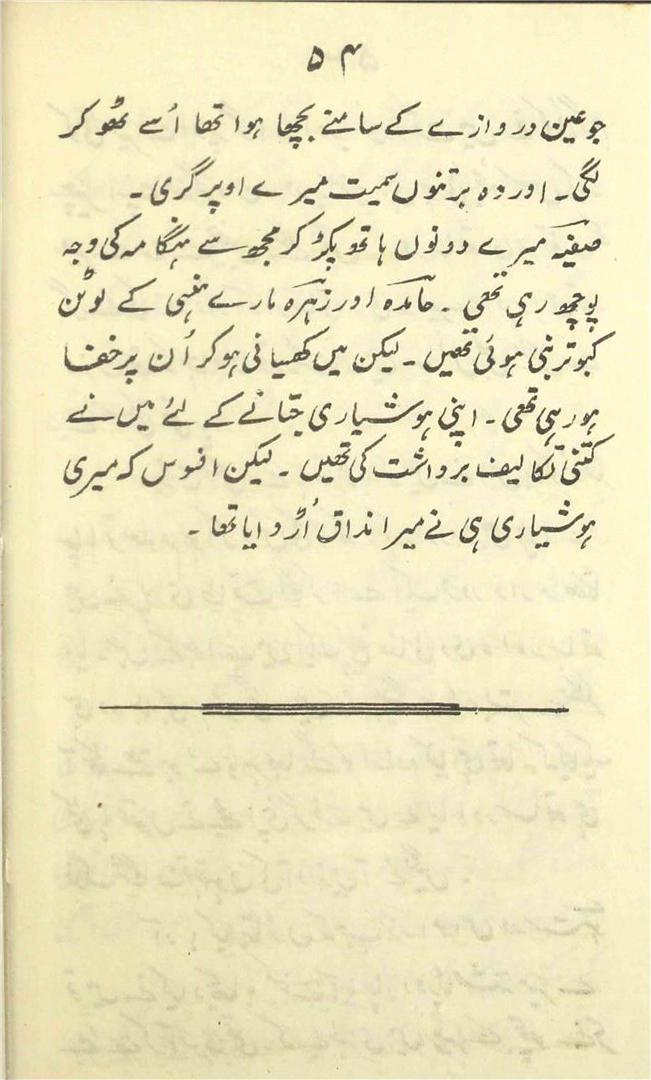 ۵۴
جو عین دروازے کے سامنے بچھا ہوا تھا اُسے ٹھوکر
لگی۔ اور وہ برتنوں سمیت میرے اوپر گری۔
صفیہ میرے دونوں ہاتھ پکڑ کر مجھ سے ہنگامہ کی وجہ
پوچھ رہی تھی۔ حامدہ اور زہرہ مارے ہنسی کے لوٹن
کبوتر بنی ہوئی تھیں۔ لیکن میں کھسیانی ہو کر اُن پر خفا
ہو رہی تھی۔ اپنی ہوشیاری جتانے کے لئے میں نے
کتنی تکالیف برداشت کی تھیں۔ لیکن افسوس کہ میری
ہوشیاری ہی نے میرا مذاق اُڑوایا تھا۔